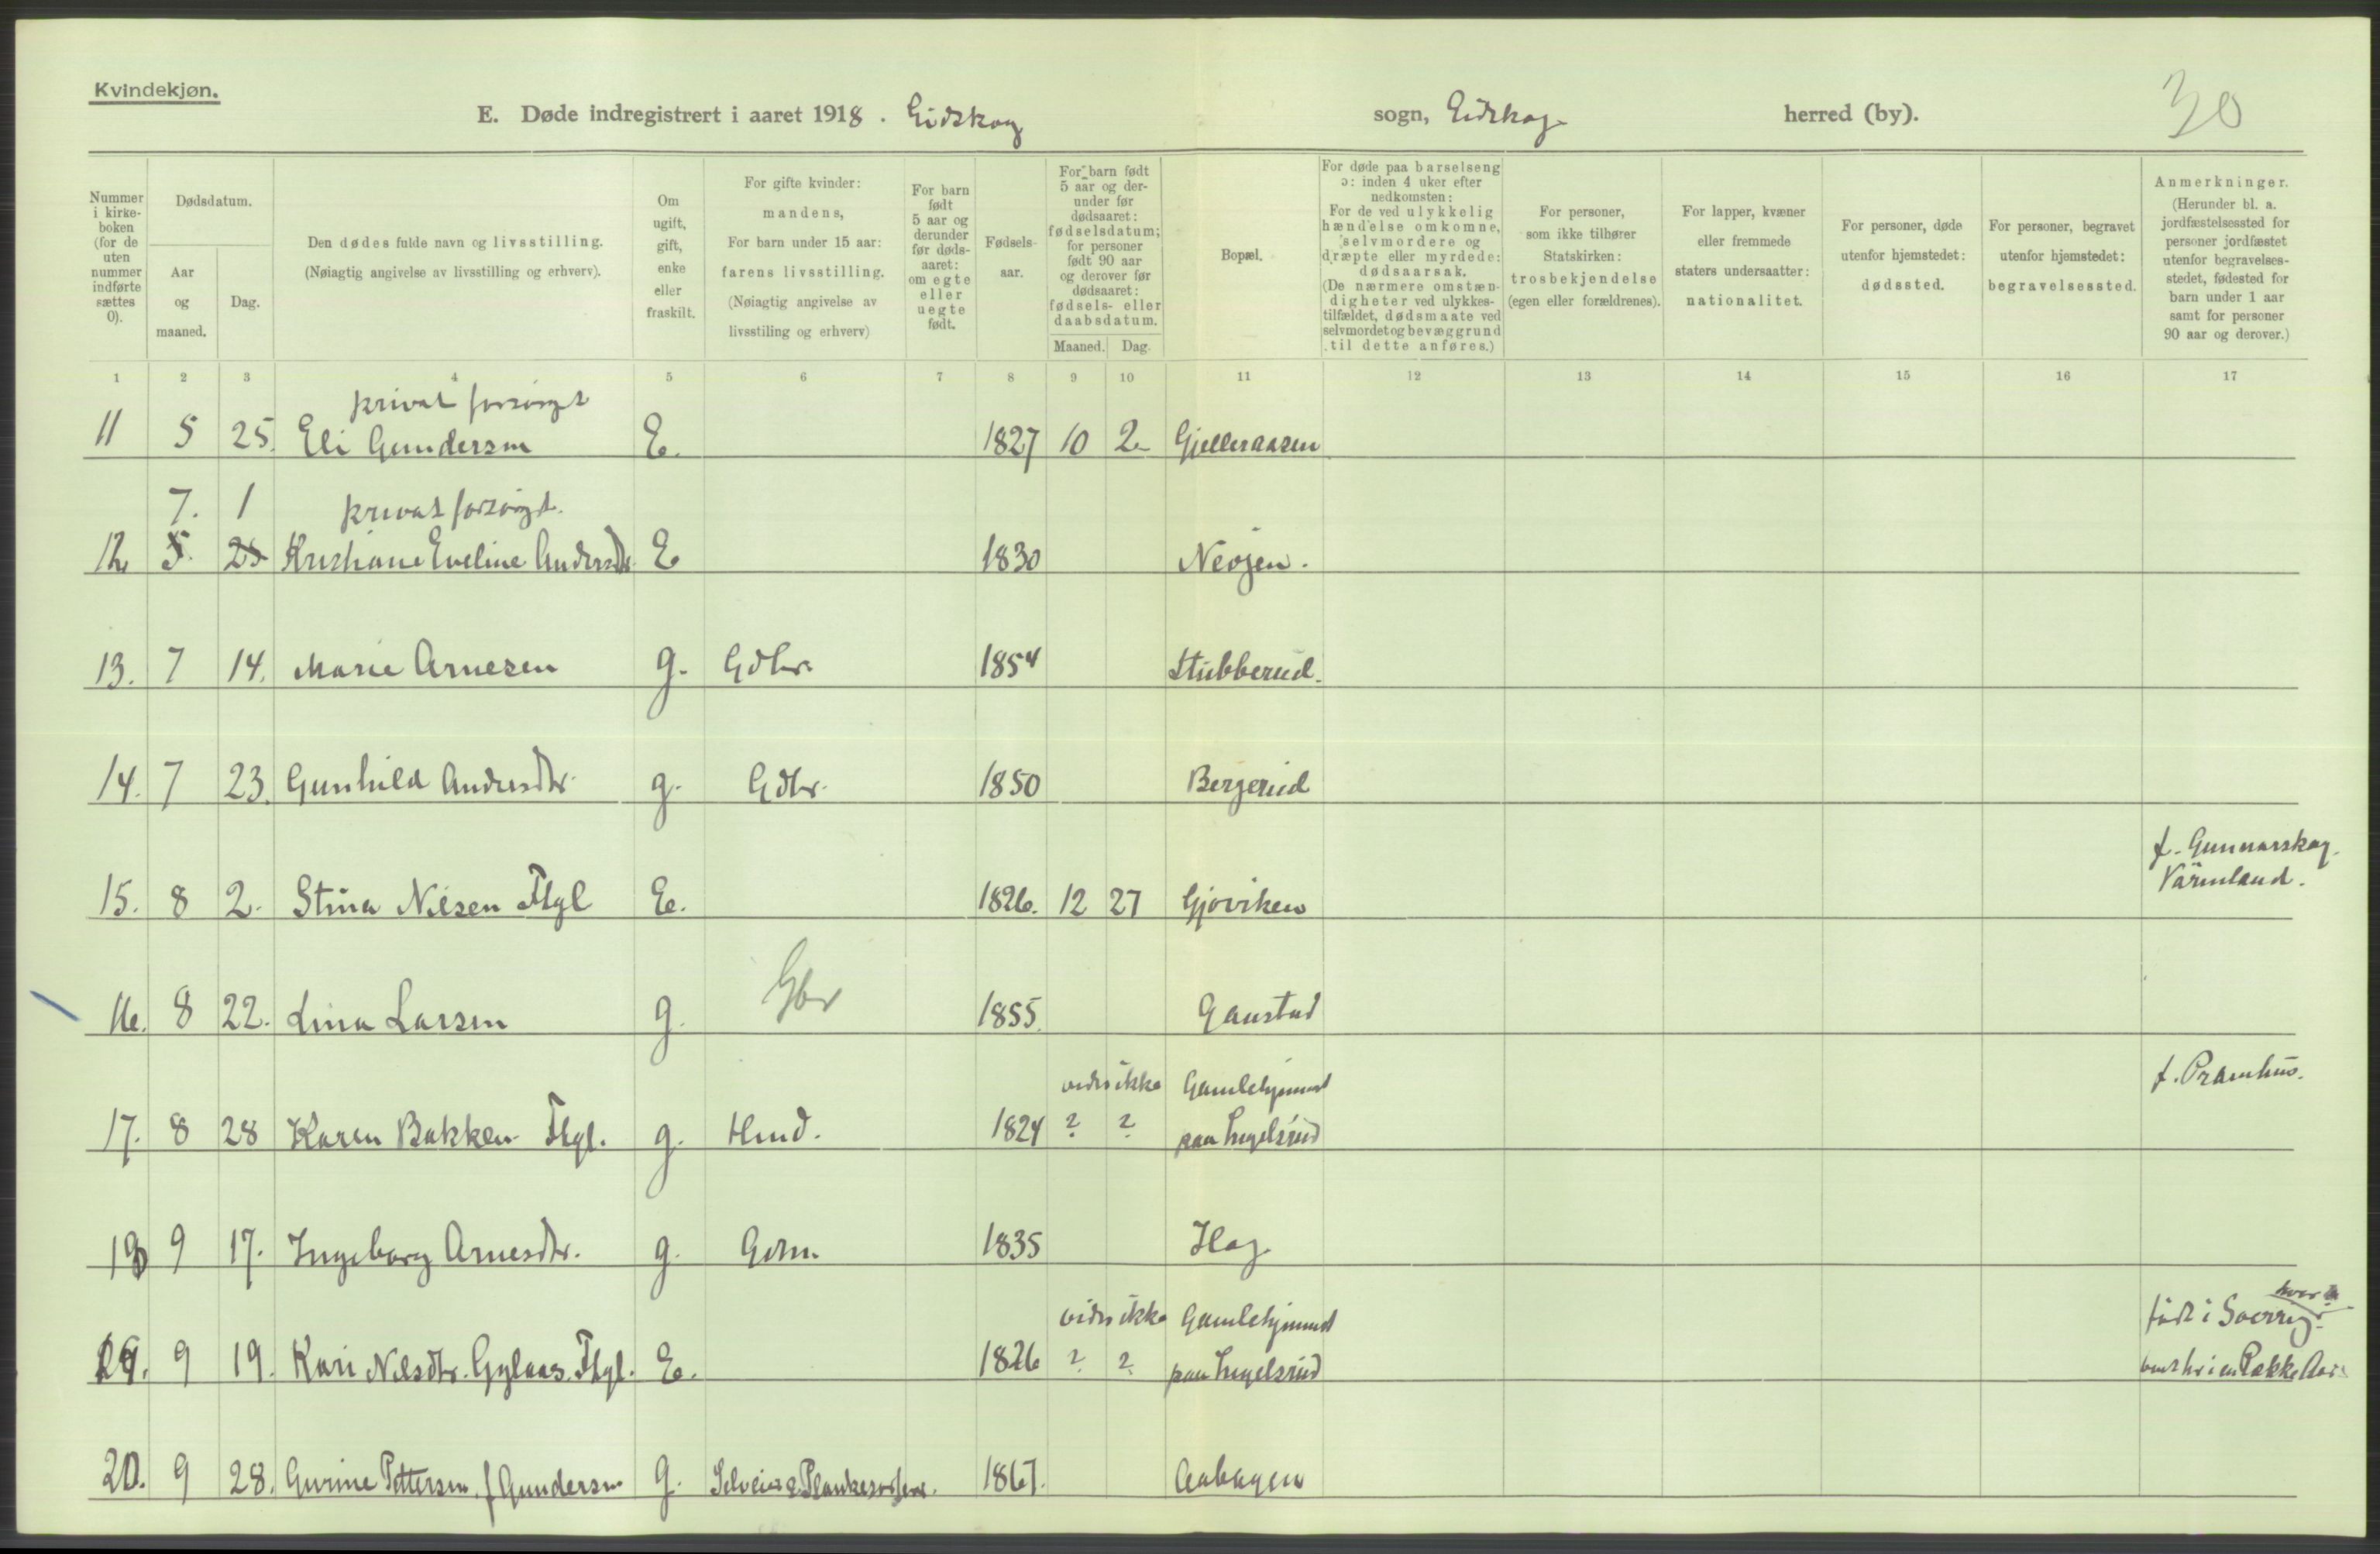 Kvindekjøn.
E. Døde indregistrert i aaret 1918. Eidskog sogn, Eidskog herred (by).
30
Nummer i kirke-boken (for de uten nummer indførte sættes 0).
Dødsdatum.
Aar og maaned.
Dag.
Den dødes fulde navn og livsstilling.
(Nøiagtig angivelse av livsstilling og erhverv).
Om ugift, gift, enke eller fraskilt.
For gifte kvinder:
mandens,
For barn under 15 aar:
farens livsstilling.
(Nøiagtig angivelse av
livsstiling og erhverv)
For barn født 5 aar og derunder før døds-aaret: om egte eller uegte født.
Fødsels-aar.
For barn født 5 aar og der-under før dødsaaret: fødselsdatum; for personer født 90 aar og derover før dødsaaret: fødsels- eller daabsdatum.
Maaned. Dag.
Bopæl.
For døde paa barselseng ɔ: inden 4 uker efter nedkomsten:
For de ved ulykkelig hændelse omkomne, selvmordere og dræpte eller myrdede: dødsaarsak.
(De nærmere omstæn-digheter ved ulykkes-tilfældet, dødsmaate ved selvmordet og bevæggrund til dette anføres.)
For personer, som ikke tilhører Statskirken: trosbekjendelse (egen eller forældrenes).
For lapper, kvæner eller fremmede staters undersaatter: nationalitet.
For personer, døde utenfor hjemstedet: dødssted.
For personer, begravet utenfor hjemstedet: begravelsessted.
Anmerkninger.
(Herunder bl. a. jordfæstelsessted for personer jordfæstet utenfor begravelses-stedet, fødested for barn under 1 aar samt for personer 90 aar og derover.)
1 2 3 4 5 6 7 8 9 10 11 12 13 14 15 16 17
privat forsørget
11 5 25. Eli Gundersen E. 1827 10 2 Gjelleraasen
7. 1 privat forsørget.
12 5. 25 Kristiane Eveline Andersdtr. E 1830 Nevjen.
13. 7 14. Marie Arnesen g. Gdbr. 1854 Stubberud.
14. 7 23. Gunhild Andersdtr. g. Gdbr. 1850 Bergerud
f. Gunnarskog.
Värmland.
15. 8 2. Stina Nilsen Flgl E. 1826. 12 27 Gjøviken
16. 8 22. Lina Larsen g. Gbr 1855. Gaustad
vides ikke Gamlehjemmet f. Pramhus.
17. 8 28 Karen Bakken Flgl. g. Hmd. 1824 ? ? paa Ingelsrud
18 9 17. Ingeborg Arnesdtr. g. Gdbr. 1835 Hag.
vides ikke Gamlehjemmet født i Sverrig.
19. 9 19. Kari Nilsdtr. Gylaas. Flgl. E. 1826 ? ? paa Ingelsrud
20. 9 28. Gurine Pettersen f Gundersen g. Selveier & 1867. Aabogen